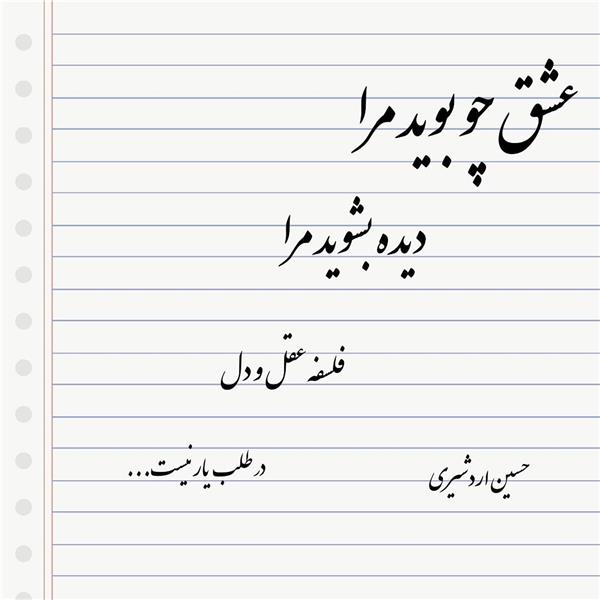 عشق چو بوید مرا
دیده بشوید مرا
فلسفه عقل و دل
در طلب یار نیست...
حسین اردشیری